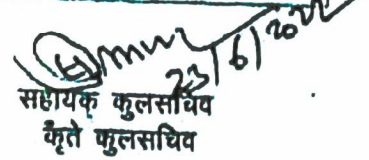 23/6/2022
सहायक कुलसचिव
कृते कुलसचिव